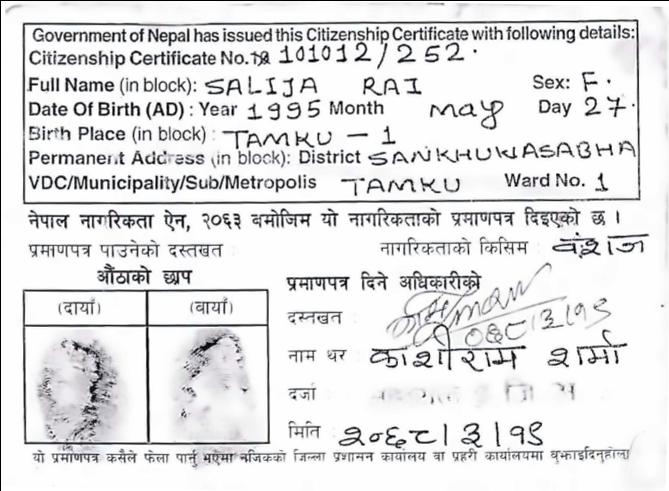 Government of Nepal has issued this Citizenship Certificate with following details:
Citizenship Certificate No. 101012/252.
Full Name (in block): SALIJA RAI Sex: F.
Date Of Birth (AD) : Year 1995 Month may Day 27.
Birth Place (in block) : TAMKU - 1
Permanent Address (in block): District SANKHUWASABHA
VDC/Municipality/Sub/Metropolis TAMKU Ward No. 1
नेपाल नागरिकता ऐन, २०६३ बमोजिम यो नागरिकताको प्रमाणपत्र दिइएको छ ।
प्रमाणपत्र पाउनेको दस्तखत नागरिकताको किसिम : वंशज
औंठाको छाप
(दायाँ) (बायाँ)
प्रमाणपत्र दिने अधिकारीको
दस्तखत :
०६८/३/१९
नाम थर : काशीराम शर्मा
दर्जा :
मिति : २०६८/३/१९
यो प्रमाणपत्र कसैले फेला पार्नु भएमा नजिकको जिल्ला प्रशासन कार्यालय वा प्रहरी कार्यालयमा बुझाइदिनुहोला